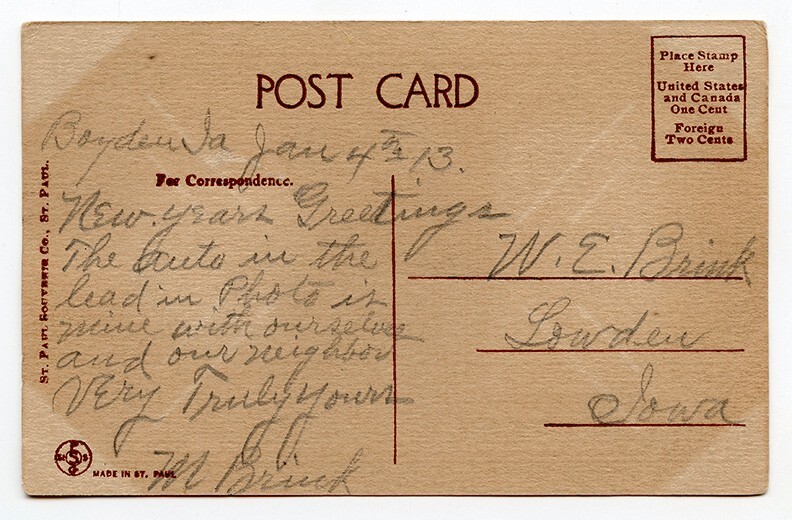 POST CARD
Place Stamp
Here
United States
and Canada
One Cent
Foreign
Two Cents
Boyden Ia Jan 4th 13.
For Correspondence.
New years Greetings
The auto in the
lead in Photo is
mine with ourselves
and our neighbor
Very Truly yours
M Brink
W. E. Brink
Lowden
Iowa
St. Paul Souvenir Co., St. Paul.
MADE IN ST. PAUL